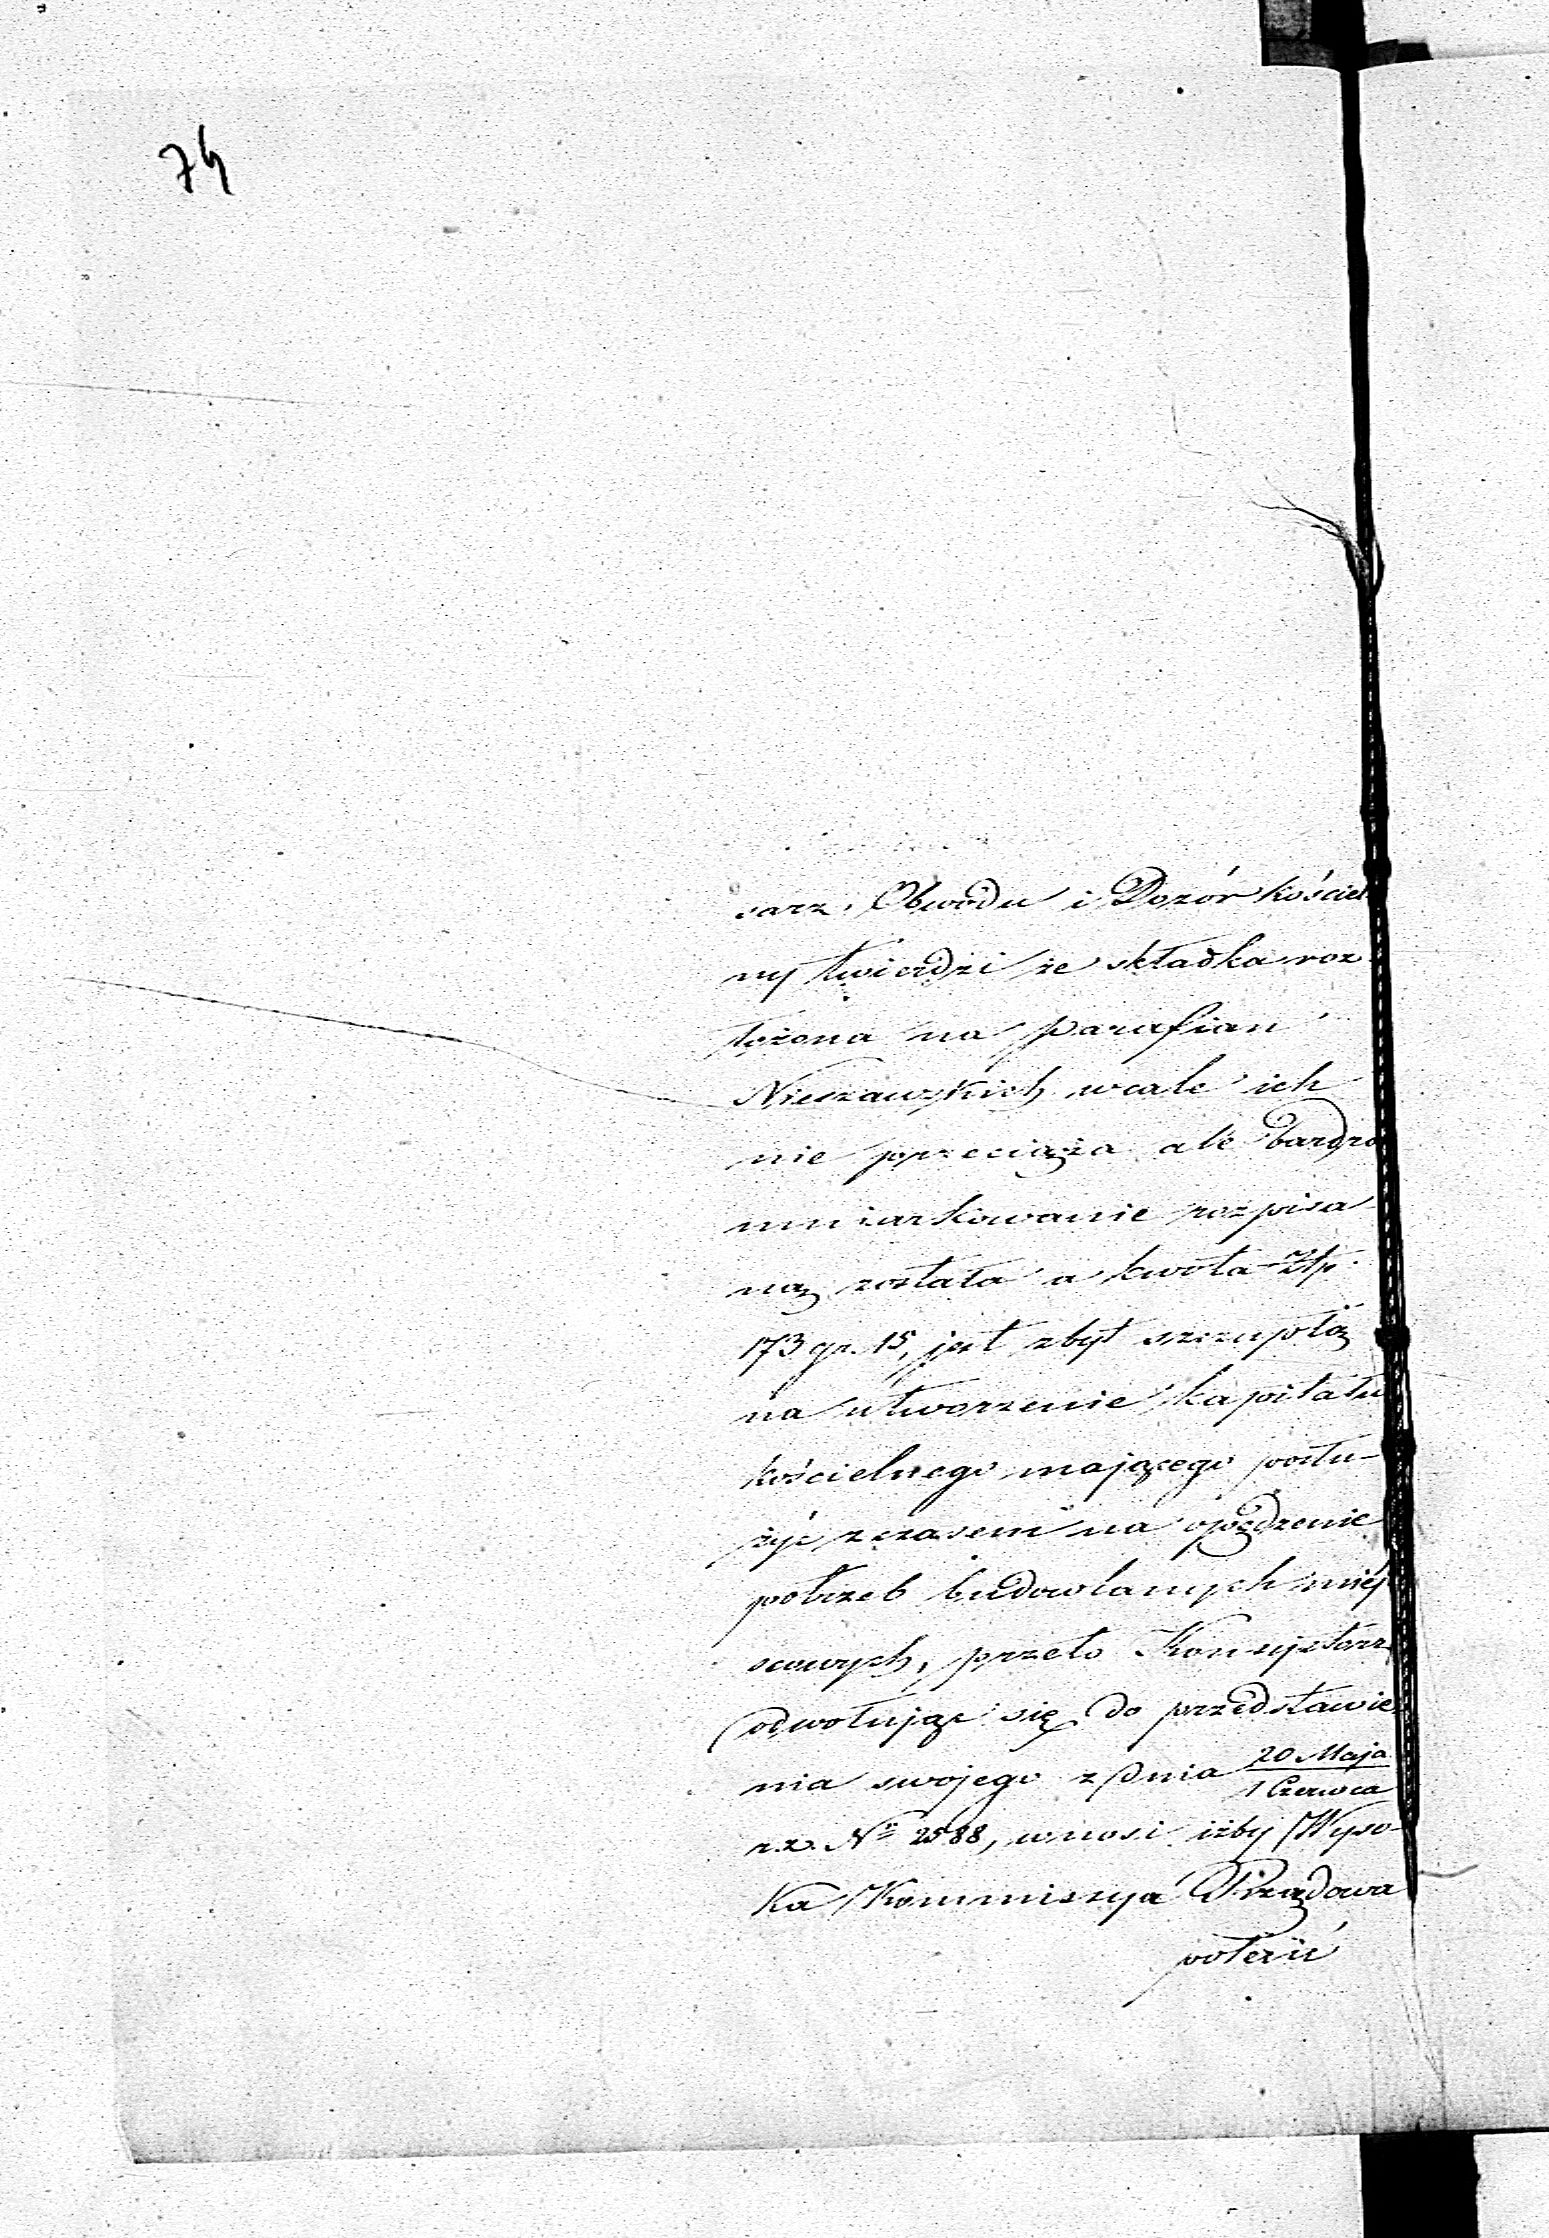 74
sarz Obwodu i Dozór kościel
ny twierdzi że składka roz
łożona na parafian
Nieszawskich wcale ich
nie przeciąża ale bardzo
umiarkowanie rozpisa
ną została a kwota Złp.
173 gr. 15, jest zbyt szczupłą
na utworzenie kapitału
kościelnego mającego posłu-
żyć z czasem na opędzenie
potrzeb budowlanych miej
scowych, przeto Konsystorz
odwołując się do przedstawie
nia swojego z dnia 20 Maja / 1 Czerwca
r.z. Nº 2588, wnosi iżby Wyso-
ka Kommissyja Rządowa